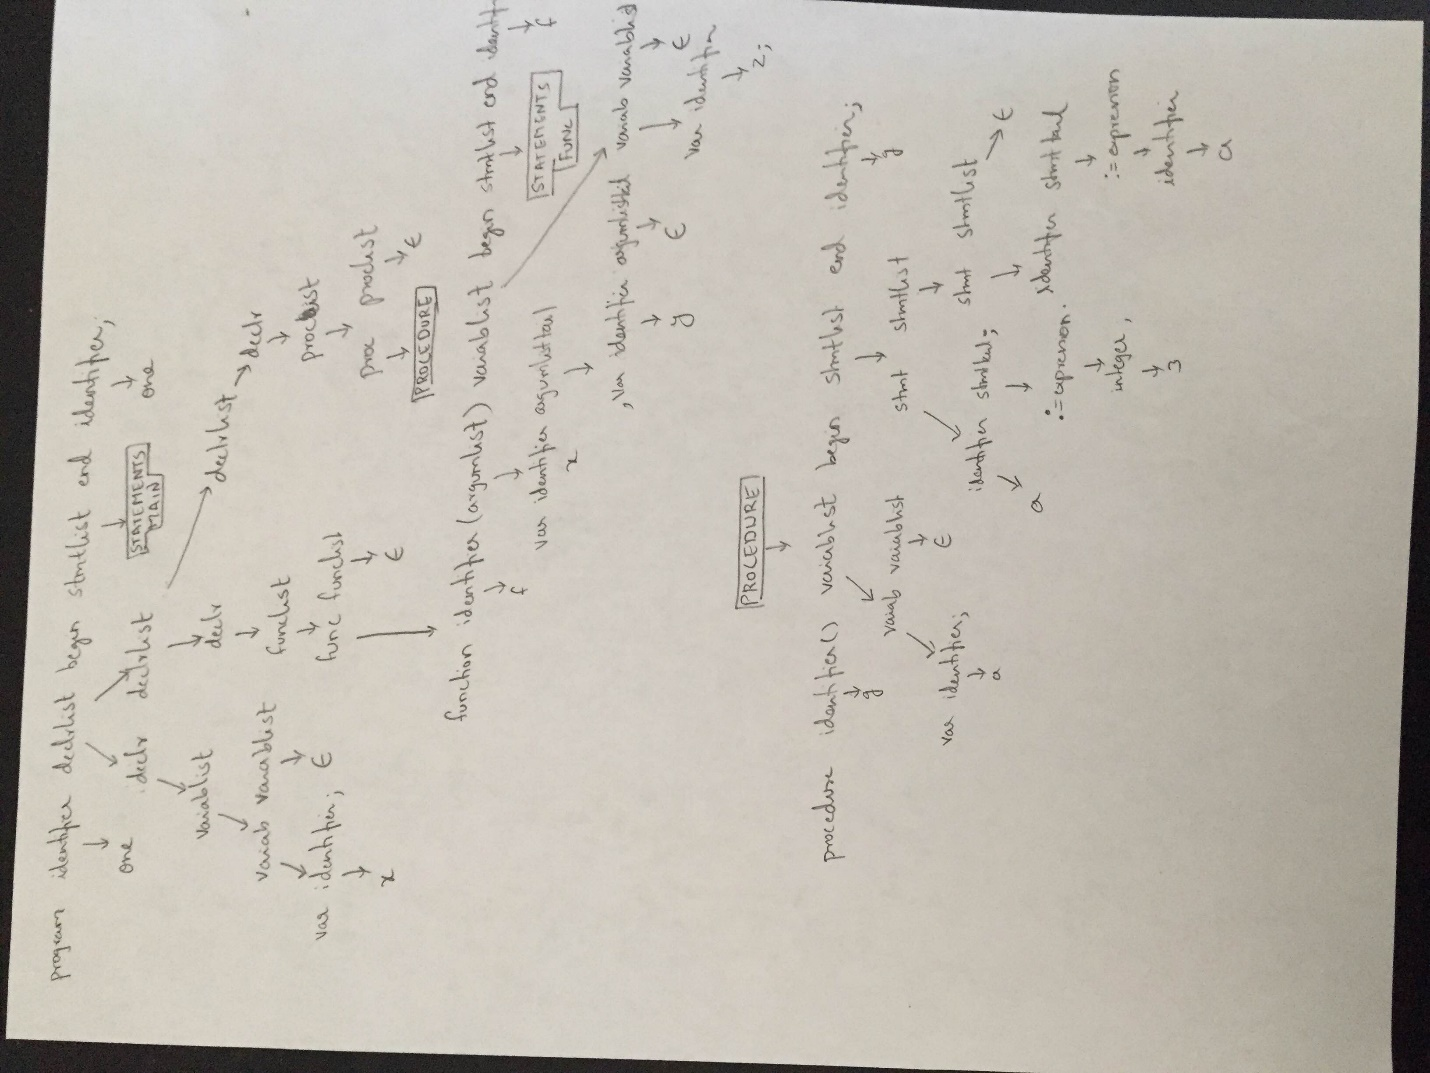 program identifier declrlist begin stmtlist end identifier;
one declr declrlist STATEMENTS MAIN one
variablist declr declrlist → declr
variab variablist funclist proclist
var identifier; ϵ func funclist proc proclist
x ϵ PROCEDURE ϵ
function identifier (argumlist) variablist begin stmtlist end
f STATEMENTS FUNC f
var identifier argumlisttail
x
, var identifier variab variablist
y ϵ var identifier ϵ
z;
PROCEDURE
procedure identifier () variablist begin stmtlist end identifier;
g variab variablist stmt stmtlist g
var identifier; ϵ identifier stmttail; stmt stmtlist
a a := expression. identifier stmttail ϵ
integer, := expression
3 identifier
a